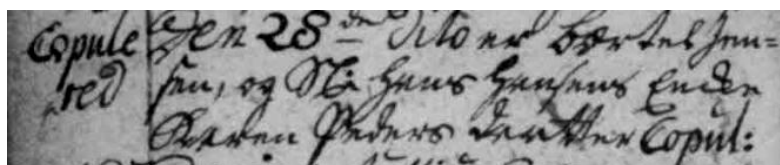 Copule Den 28de dito er Bertel Jen=
red sen, og Sl: Hans Hansens Encke
Karen Peders daatter Copul: